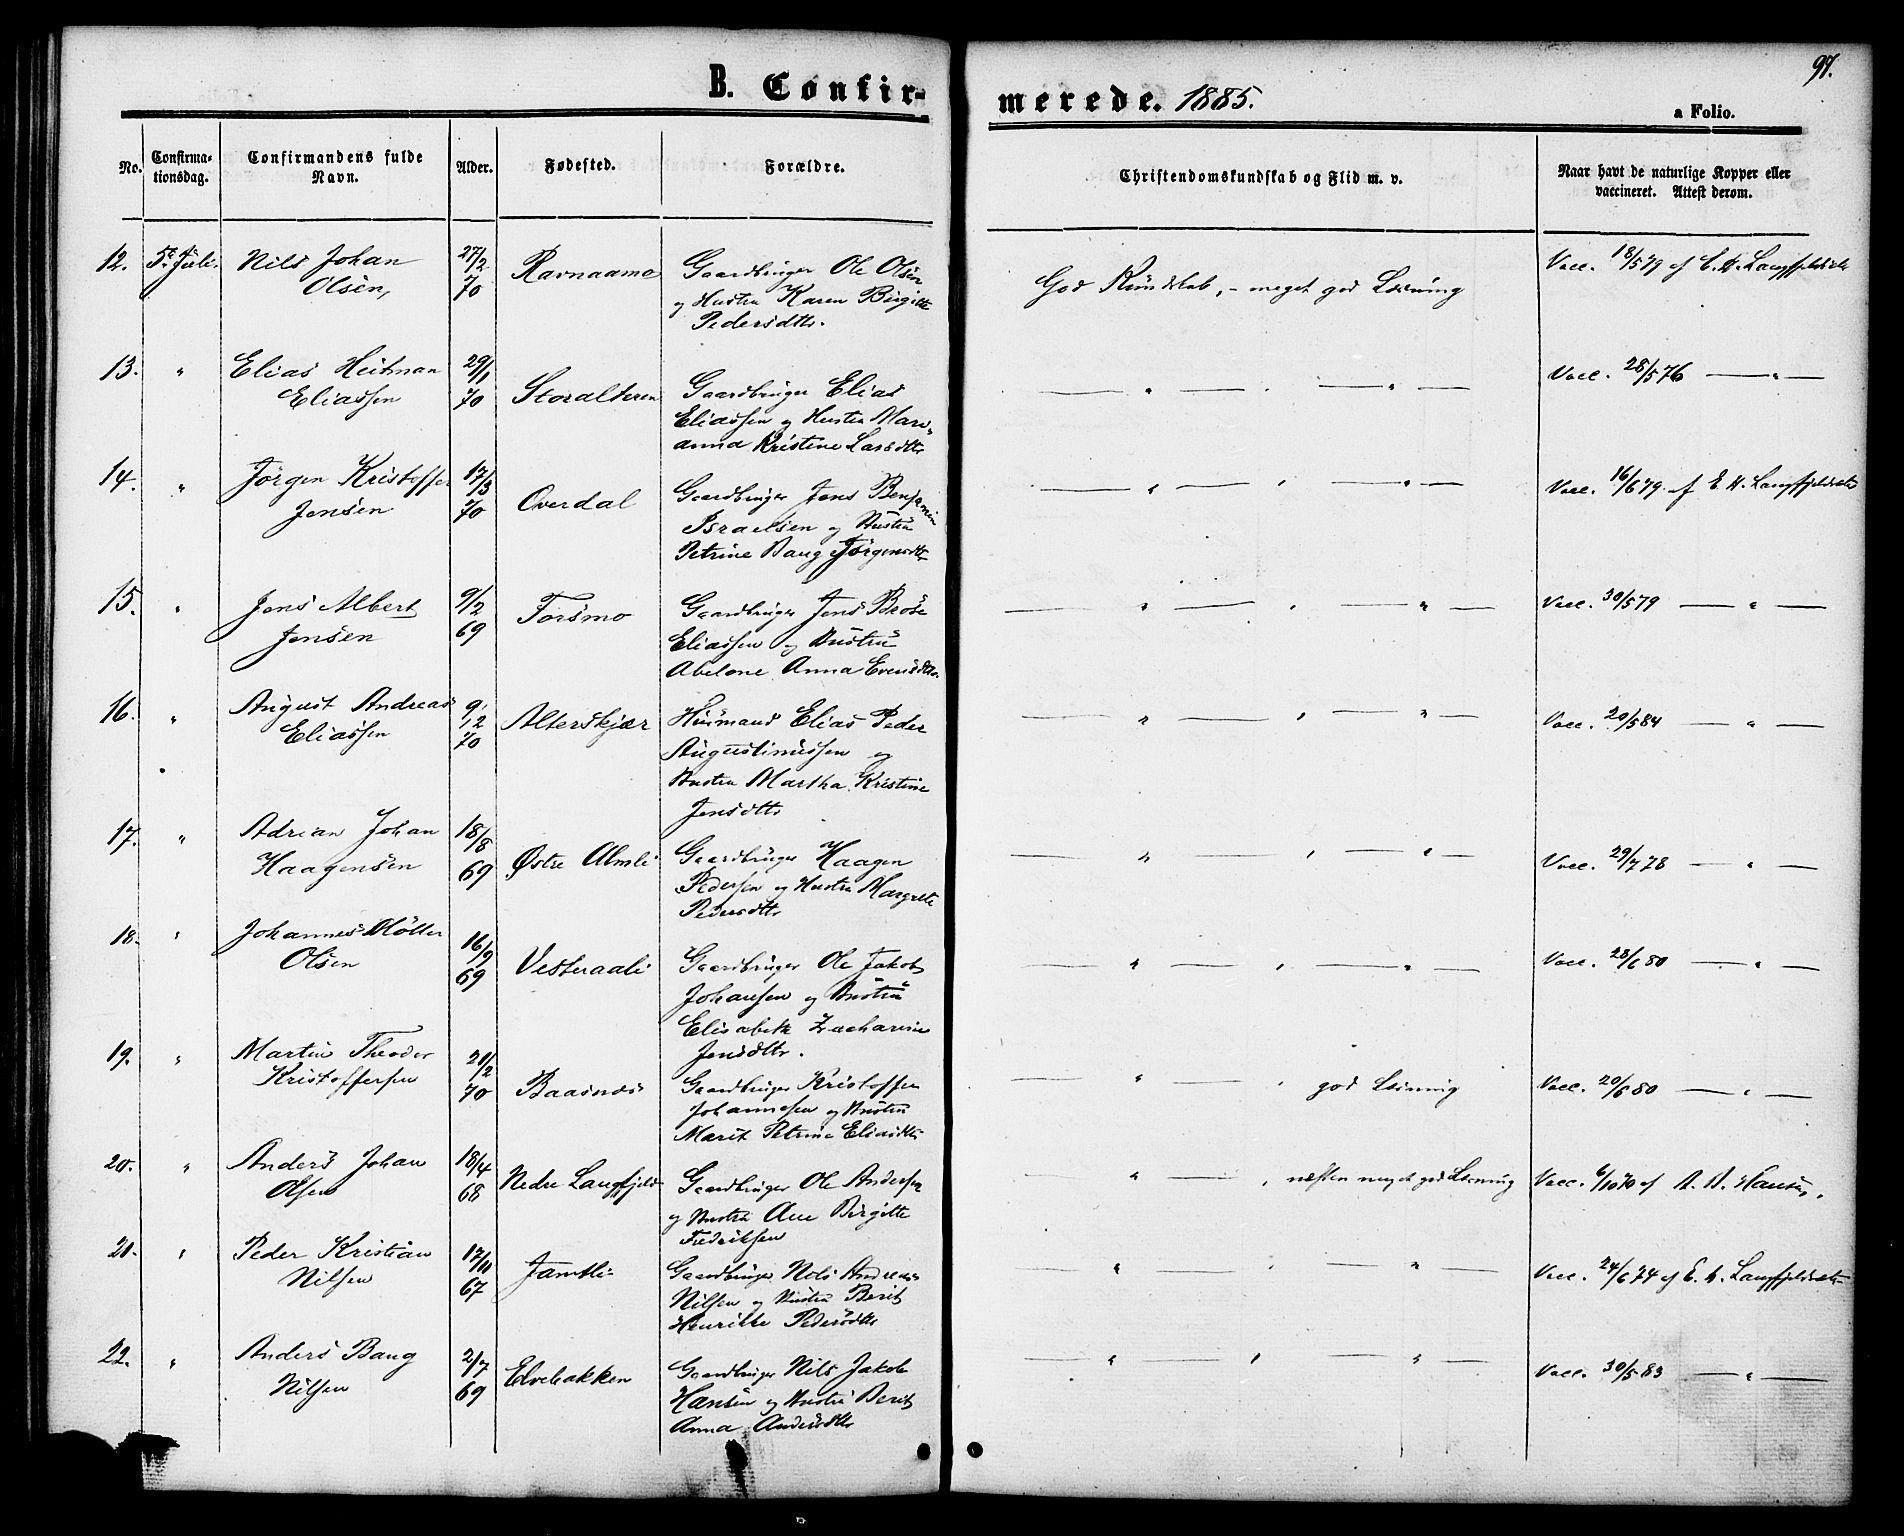 B. Confir-
merede. 1885.
97.
a Folio.
No.
Confirma-
tionsdag.
Confirmandens fulde
Navn.
Alder.
Fødested.
Forældre.
Christendomskundskab og Flid m. v.
Naar havt de naturlige Kopper eller
vaccineret. Attest derom.
12. 5te Juli. Nils Johan 27/2
Olsen, 70 Ravnaamo
Gaardbruger Ole Olsen
og Hustru Karen Birgitte
Pedersdtr.
God Kundskab, - meget god Læsning
Vacc. 18/5 79 af E. H. Langfjeld
13. " Elias Heitman 29/1
Eliassen 70 Storalteren
Gaardbruger Elias
Eliassen og Hustru Mari-
anna Kristine Larsdtr
— " — , — " —
Vacc. 28/5 76 — " —
14. " Jørgen Kristoffer 17/3
Jensen 70 Overdal
Gaardbruger Jens Benjamin
Israelsen og Hustru
Petrine Baug Jørgensdtr
— " — , — " —
Vacc. 16/6 79. af E. H. Langfjeld
15. " Jens Albert 9/2
Jensen 69 Forsmo
Gaardbruger Jens Brose
Eliassen og Hustru
Abelone Anna Evensdtr
— " — , — " —
Vacc. 30/5 79 — " —
16. " August Andreas 9/12
Eliassen 70 Alterskjær
Husmand Elias Peder
Augustinussen og
Hustru Martha Kristine
Jensdtr
— " — , — " —
Vacc. 20/5 84 — " —
17. " Adrian Johan 18/8
Haagensen 69 Østre Almli
Gaardbruger Haagen
Pedersen og Hustru Margrete
Pedersdtr
— " — , — " —
Vacc. 29/7 78 — " —
18. " Johannes Møller 16/9
Olsen 69 Vesteraali
Gaardbruger Ole Jakob
Johansen og Hustru
Elisabeth Zacharine
Jensdtr.
— " — , — " —
Vacc. 28/6 80 — " —
19. " Martin Theodor 21/2
Kristoffersen 70 Baasnæs
Gaardbruger Kristoffer
Johannesen og Hustru
Marit Petrine Eliasdtr
— " — , god Læsning
Vacc. 20/6 80 — " —
20. " Anders Johan 18/4
Olsen 68 Nedre Langfjeld
Gaardbruger Ole Andersen
og Hustru Ane Birgitte
Fredriksen
— " — , næsten meget god Læsning
Vacc. 6/10 70 af A. A. Hansen,
21. " Peder Kristian 17/11
Nilsen 67 Jamtli
Gaardbruger Nils Andreas
Nilsen og Hustru Berit
Henrikke Pedersdtr
— " — , — " —
Vacc. 24/6 74 af E. H. Langfjeld
22. " Anders Baug 2/7
Nilsen 69 Elvebakken
Gaardbruger Nils Jakob
Hansen og Hustru Berit
Anna Andersdtr
— " — , — " —
Vacc. 30/5 83 — " —